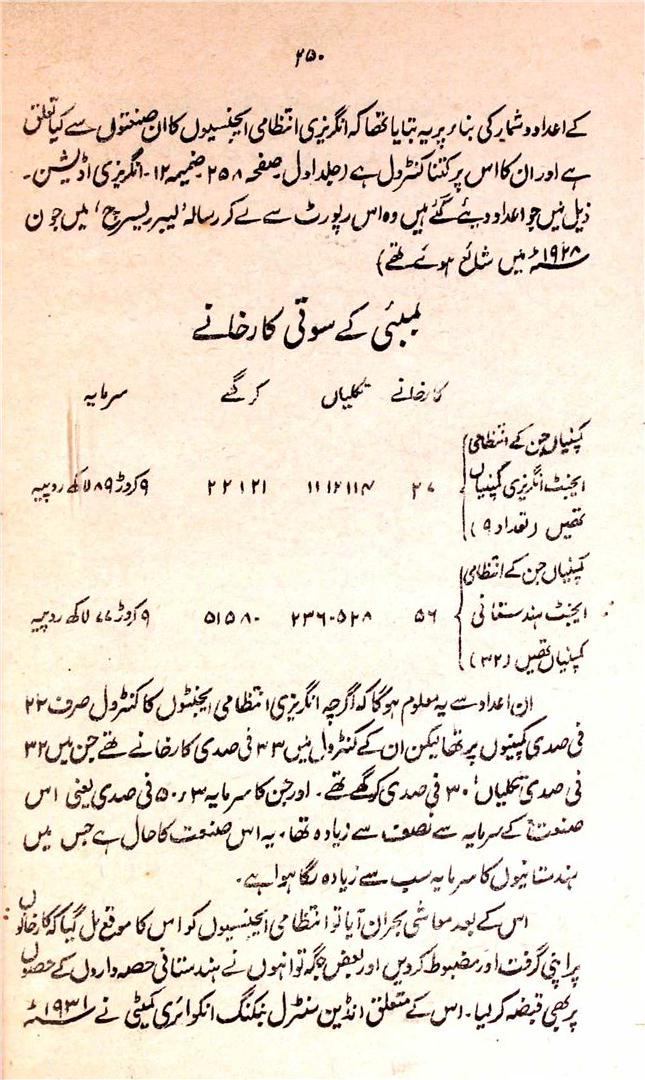 ۲۵۰
کے اعداد و شمار کی بناء پر یہ بتایا تھا کہ انگریزی انتظامی ایجنسیوں کا ان صنعتوں سے کیا تعلق
ہے اور ان کا اس پر کتنا کنٹرول ہے (جلد اول۔ صفحہ ۲۵۸ ضمیمہ ۱۲۔ انگریزی اڈیشن۔
ذیل میں جو اعداد دیئے گئے ہیں وہ اس رپورٹ سے لے کر رسالہ ’لیبر ریسرچ‘ میں جون
۱۹۲۸ء میں شائع ہوئے تھے)
بمبئی کے سوتی کارخانے
کارخانے تکلیاں کرگھے سرمایہ
کمپنیاں جن کے انتظامی
ایجنٹ انگریزی کمپنیاں ۲۷ ۱۱۱۲۱۱۴ ۲۲۱۲۱ ۹ کروڑ ۸۹ لاکھ روپیہ
تھیں (تعداد ۹)
کمپنیاں جن کے انتظامی
ایجنٹ ہندستانی ۵۶ ۲۳۶۰۵۲۸ ۵۱۵۸۰ ۹ کروڑ ۷۷ لاکھ روپیہ
کمپنیاں تھیں (۳۲)
ان اعداد سے یہ معلوم ہوگا کہ اگرچہ انگریزی انتظامی ایجنٹوں کا کنٹرول صرف ۲۲
فی صدی کمپنیوں پر تھا لیکن ان کے کنٹرول میں ۳۳ فی صدی کارخانے تھے جن میں ۳۲
فی صدی تکلیاں‘ ۳۰ فی صدی کرگھے تھے۔ اور جن کا سرمایہ ۵۰٫۳ فی صدی یعنی اس
صنعت کے سرمایہ سے نصف سے زیادہ تھا۔ یہ اس صنعت کا حال ہے جس میں
ہندستانیوں کا سرمایہ سب سے زیادہ لگا ہوا ہے۔
اس کے بعد معاشی بحران آیا تو انتظامی ایجنسیوں کو اس کا موقع مل گیا کہ کارخانوں
پر اپنی گرفت اور مضبوط کردیں اور بعض جگہ تو انہوں نے ہندستانی حصہ داروں کے حصوں
پر بھی قبضہ کرلیا۔ اس کے متعلق انڈین سنٹرل بنکنگ انکوائری کمیٹی نے ۱۹۳۱ء